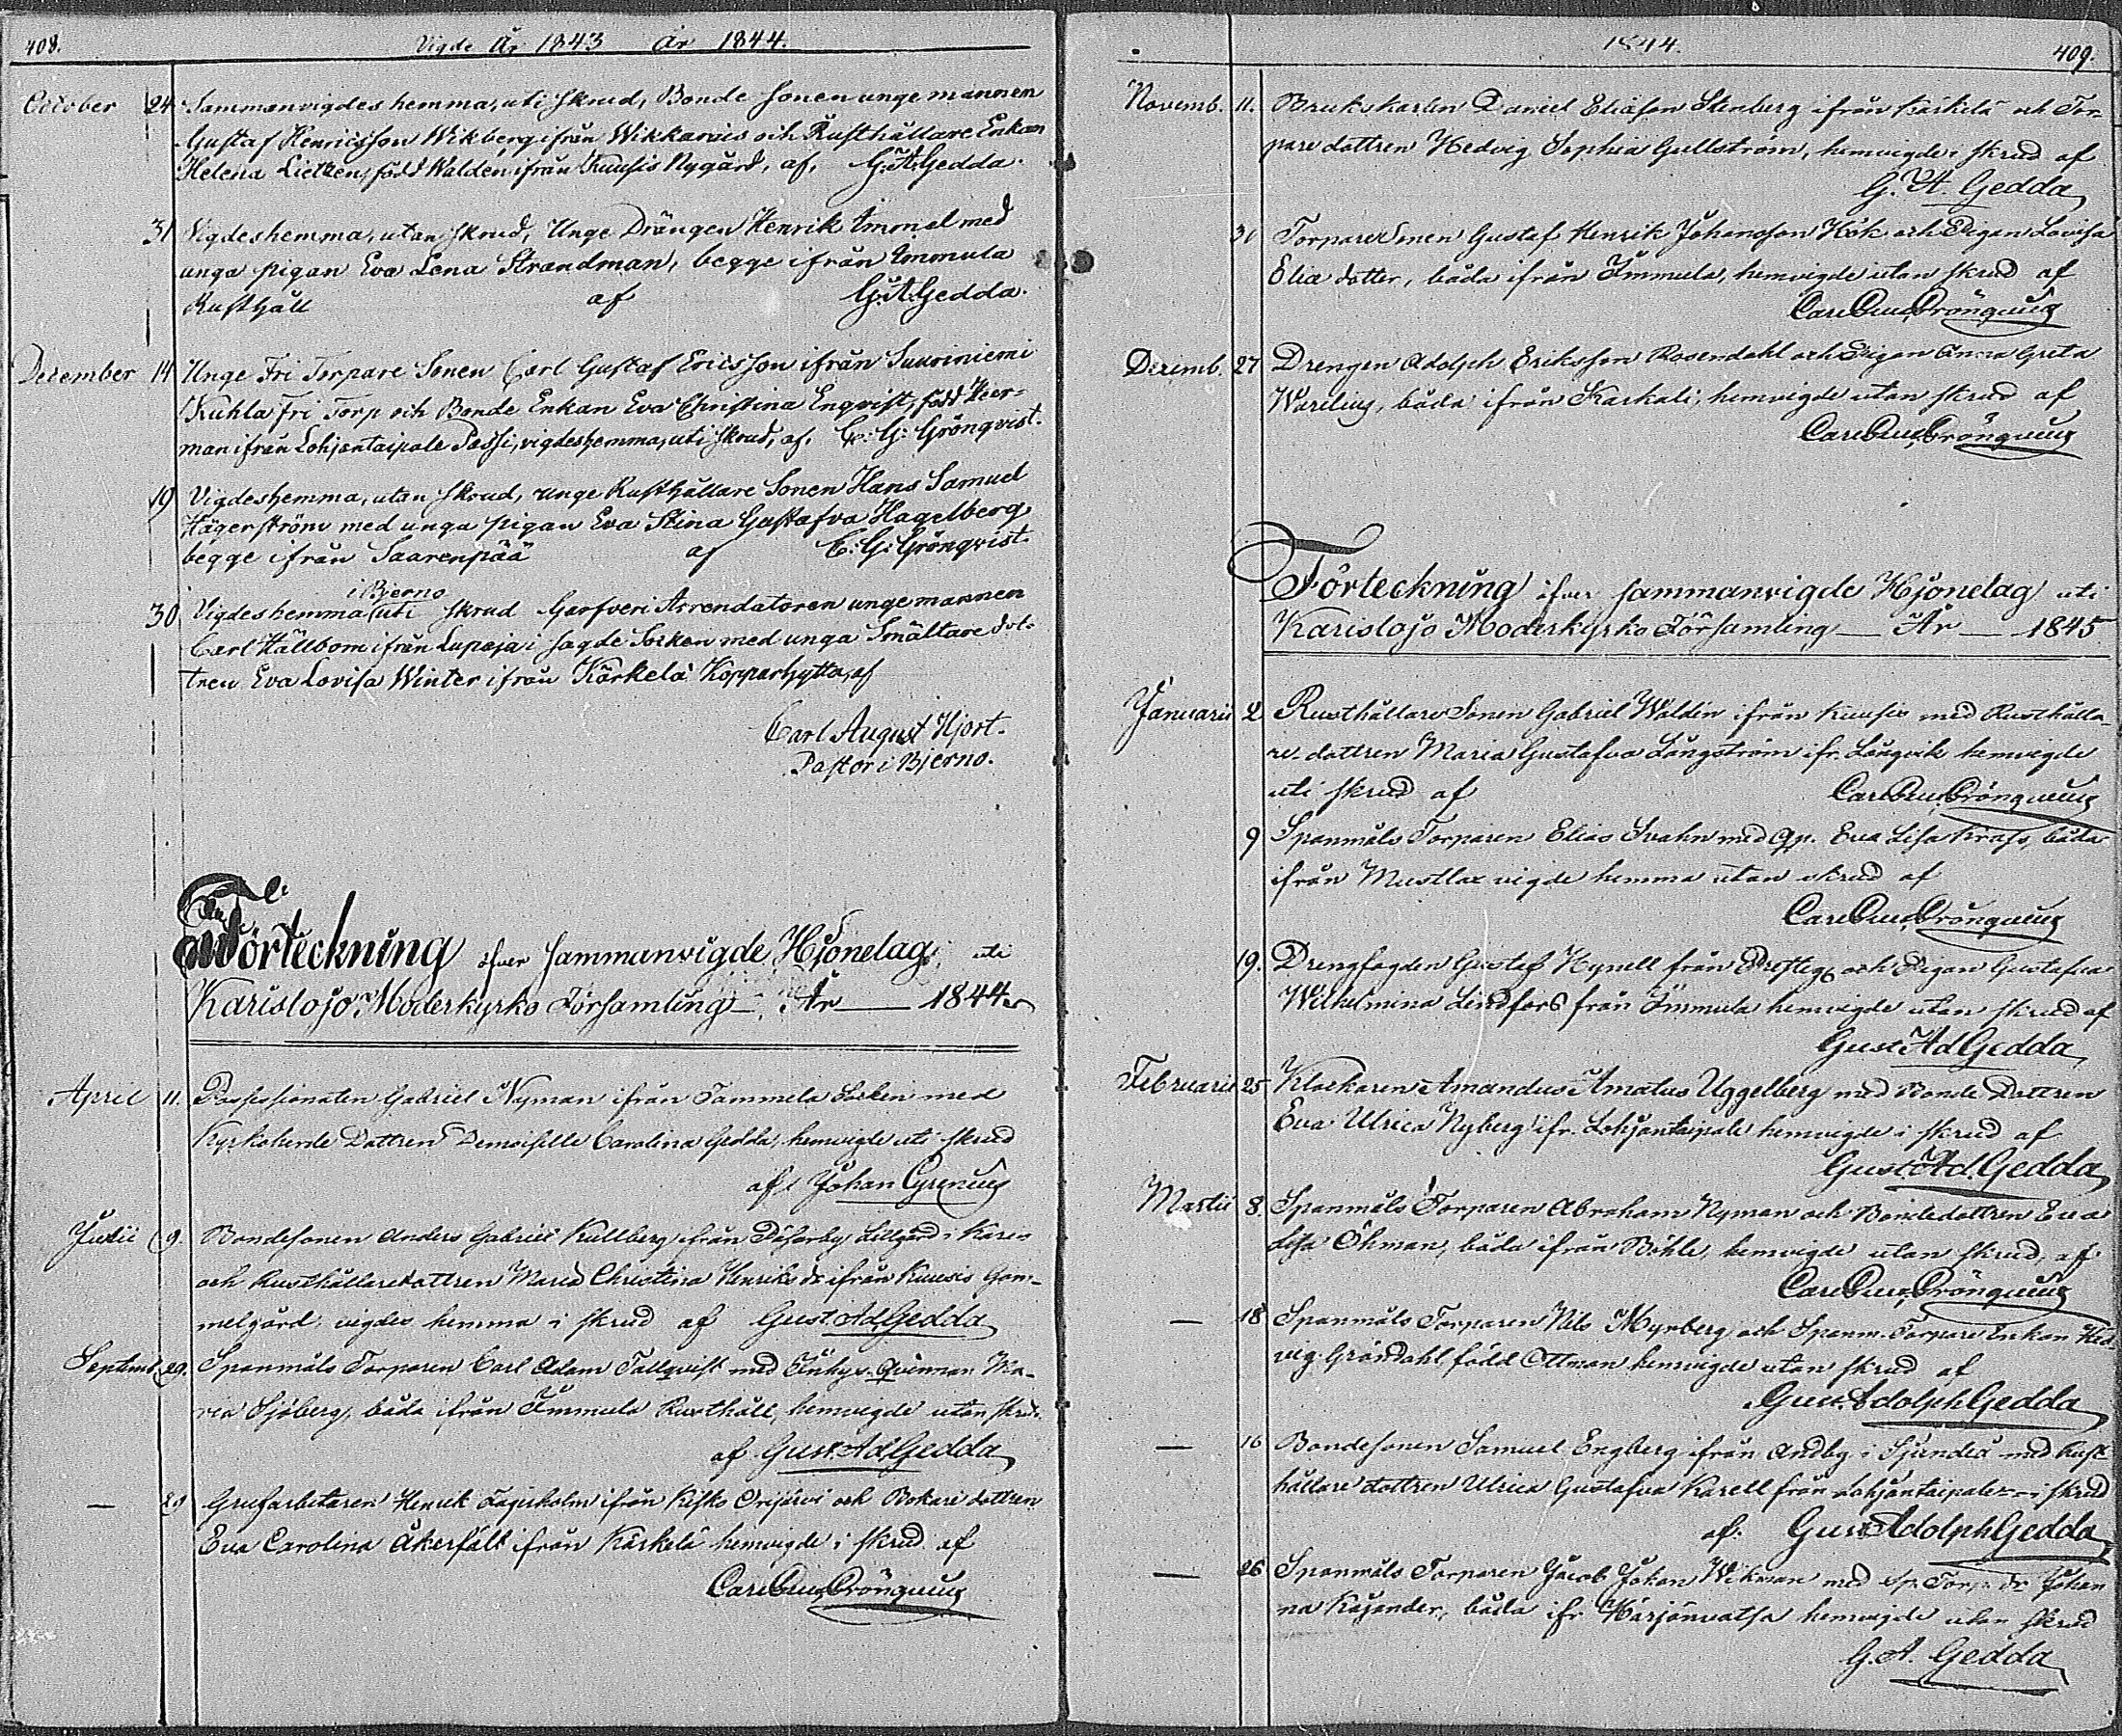 408.
Vigde År 1843 År 1844.
October 24 Sammanvigdes hemma, uti skrud, Bonde sonen unge mannen
Gustaf Henricsson Wikberg ifrån Wikkarais och Rusthållare Enkan
Helena Lietzen, född Walden ifrån Kuusis Nygård, af, G:A:Gedda.
31 Vigdes hemma, utan skrud, Unge Drängen Henrik Immel med
unga pigan Eva Lena Strandman, begge ifrån Immula
Rusthåll af G:A:Gedda.
December 14 Unge Fri Torpare Sonen Carl Gustaf Ericsson ifrån Suuriniemi
Kuhla Fri Torp och Bonde Enkan Eva Christina Enqvist, född Heer-
man ifrån Lohjantaipale Passi, vigdes hemma, uti skrud, af, C: G: Grönqvist.
19 Vigdes hemma, utan skrud, unge Rusthållare Sonen Hans Samuel
Hägerström med unga pigan Eva Stina Gustafva Hagelberg
begge ifrån Saarenpää af C: G: Grönqvist.
i Bjerno
30 Vigdes hemma uti skrud Garfveri Arrendatoren unge mannen
Carl Hällbom ifrån Lupaja i sagde Socken med unga Smältare dot-
tren Eva Lovisa Winter ifrån Kärkelä Kopparhytta, af
Carl August Hjort.
Pastor i Bjerno.
Förteckning öfver sammanvigde Hjonelag uti
Karislojo Moderkyrko Församling — År — 1844
April 11. Possessionaten Gabriel Nyman ifrån Tammela Socken med
Kyrkoherde Dottren Demoiselle Carolina Gedda, hemvigde uti skrud
af Johan Cyrenius
Julii 9. Bondesonen Anders Gabriel Kullberg ifrån Lillgård i Karis
och Rusthållaredottren Maria Christina Henriksdr ifrån Kuusis Gam-
melgård, vigdes hemma i skrud af Gust. Ad. Gedda
Septemb. 29. Spanmåls Torparen Carl Adam Tallqvist med Inhys-Qvinnan Ma-
ria Sjöberg, båda ifrån Immula Rusthåll, hemvigde utan skrud.
af Gust. Ad Gedda
— 29 Grufarbetaren Henrik Fagerholm ifrån Kisko Orijärvi och Bokare dottren
Eva Carolina Åkerfält ifrån Kärkelä hemvigde i skrud af
Carl Gust. Grönqvist
1844.
409.
Novemb. 11. Brukskarlen Daniel Eliasson Stenberg ifrån Kärkelä och Tor-
pare dottren Hedvig Sophia Gullström, hemvigde i skrud af
G. A. Gedda
30 Torpare Sonen Gustaf Henrik Johansson Kök och Pigan Lovisa
Elia dotter, båda ifrån Immula, hemvigde utan skrud af
Carl Gust. Grönqvist
Decemb. 27 Drengen Adolph Eriksson Rosendahl och Pigan Anna Greta
Warelius, båda ifrån Karkali, hemvigde utan skrud af
Carl Gust. Grönqvist
Förteckning öfver sammanvigde Hjonelag uti
Karislojo Moderkyrko Församling — År — 1845
Januarii 2 Rusthållare Sonen Gabriel Waldén ifrån Kuusis med Rusthålla-
re-dottren Maria Gustafva Långström ifr. Långvik hemvigde
uti skrud af Carl Gust. Grönqvist
9 Spanmåls Torparen Elias Svahn med Qp. Eva Lisa Krass, båda
ifrån Mustlax vigde hemma utan skrud af
Carl Gust. Grönqvist
19. Drengfogden Gustaf Hynell från och Pigan Gustafva
Wilhelmina Lindfors från Immula hemvigde utan skrud af
Gust. Ad Gedda
Februarii 25 Klockaren Amandus Amatus Uggelberg med Bonde Dottren
Eva Ulrica Nyberg ifr. Lohjantaipale hemvigde i skrud af
Gust. Ad. Gedda
Martii 8. Spanmåls Torparen Abraham Nyman och Bondedottren Eva
Lisa Öhman, båda ifrån Böhle, hemvigde utan skrud, af
Carl Gust. Grönqvist
— 18 Spanmåls Torparen Nils Myrberg och Spanm. Torpare Enkan Hed-
vig Gröndahl född Ottman hemvigde utan skrud af
Gust. Adolph Gedda
— 16 Bondesonen Samuel Engberg ifrån Andby i Sjundeå med Rust-
hållare dottren Ulrica Gustafva Karell från Lohjantaipale — i skrud
af. Gust. Adolph Gedda
— 26 Spanmåls Torparen Jacob Johan Wikman med Sp. Torp. dr Johan
na Kajander, båda ifr Härjänvatsa hemvigde utan skrud
G. A. Gedda